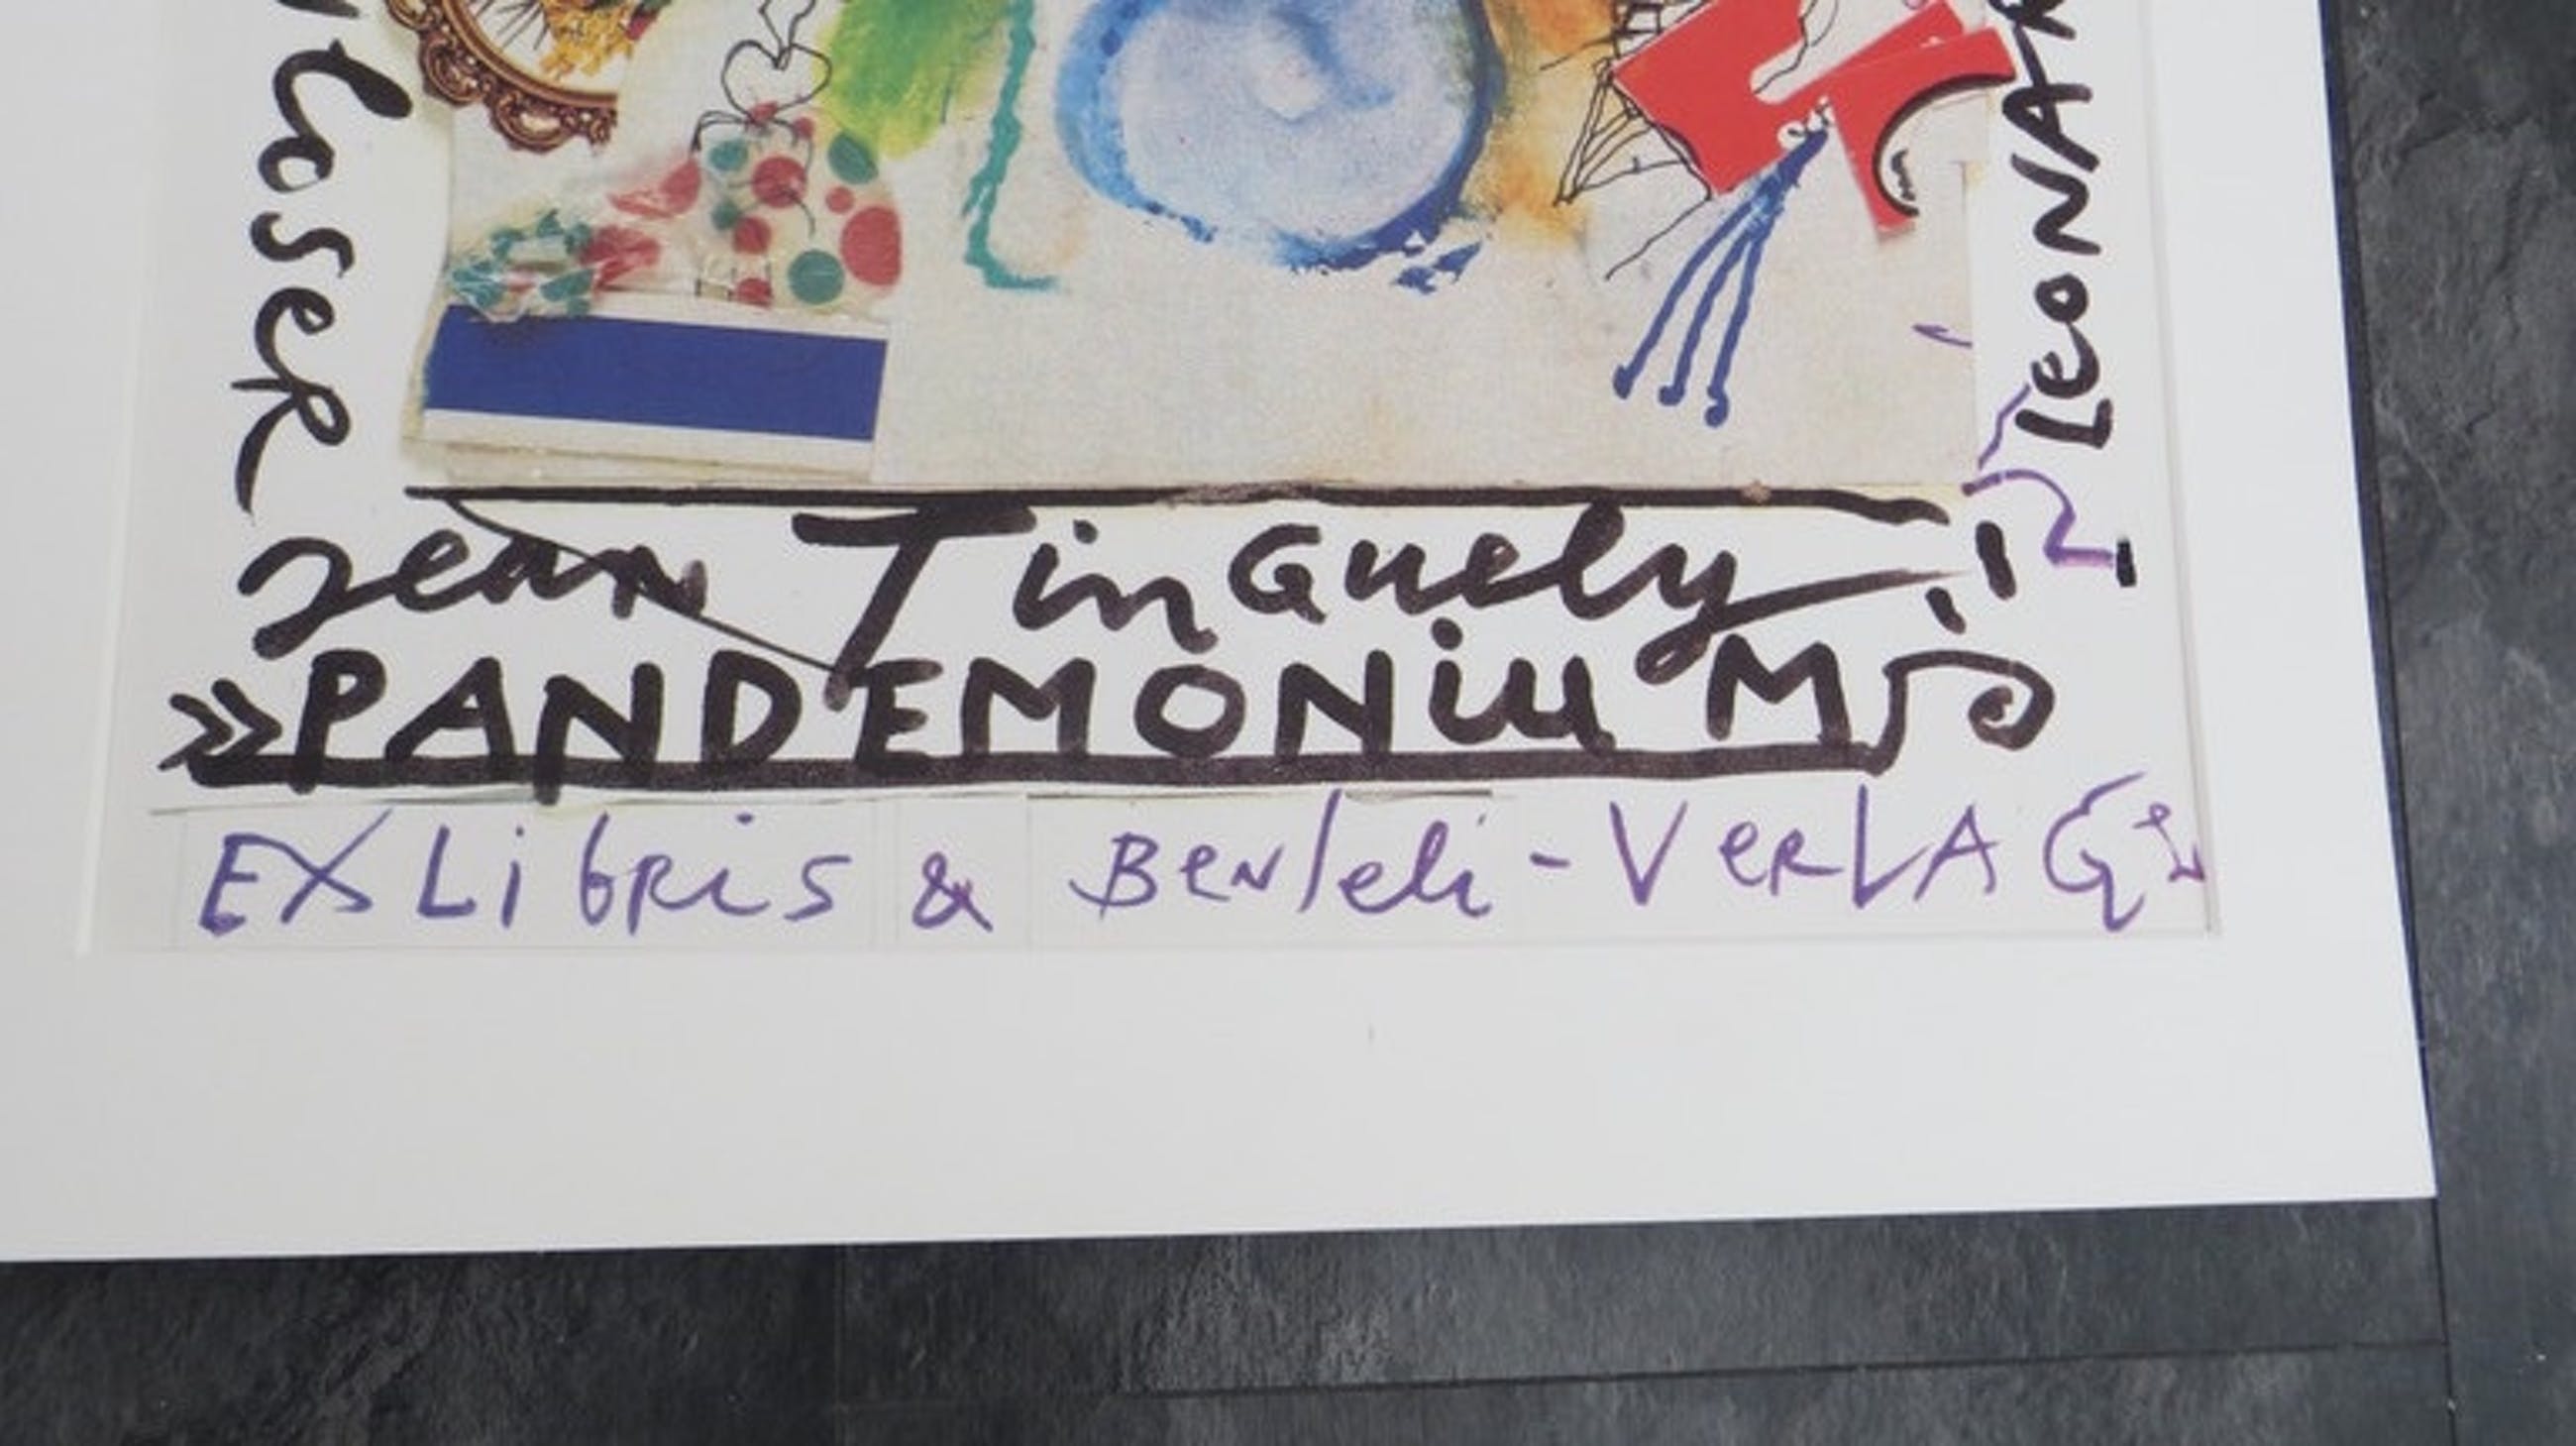 loser
LEONAR
Jean TinGuely
»PANDEMONiuM
EXLibRis & Benteli-VerLAG